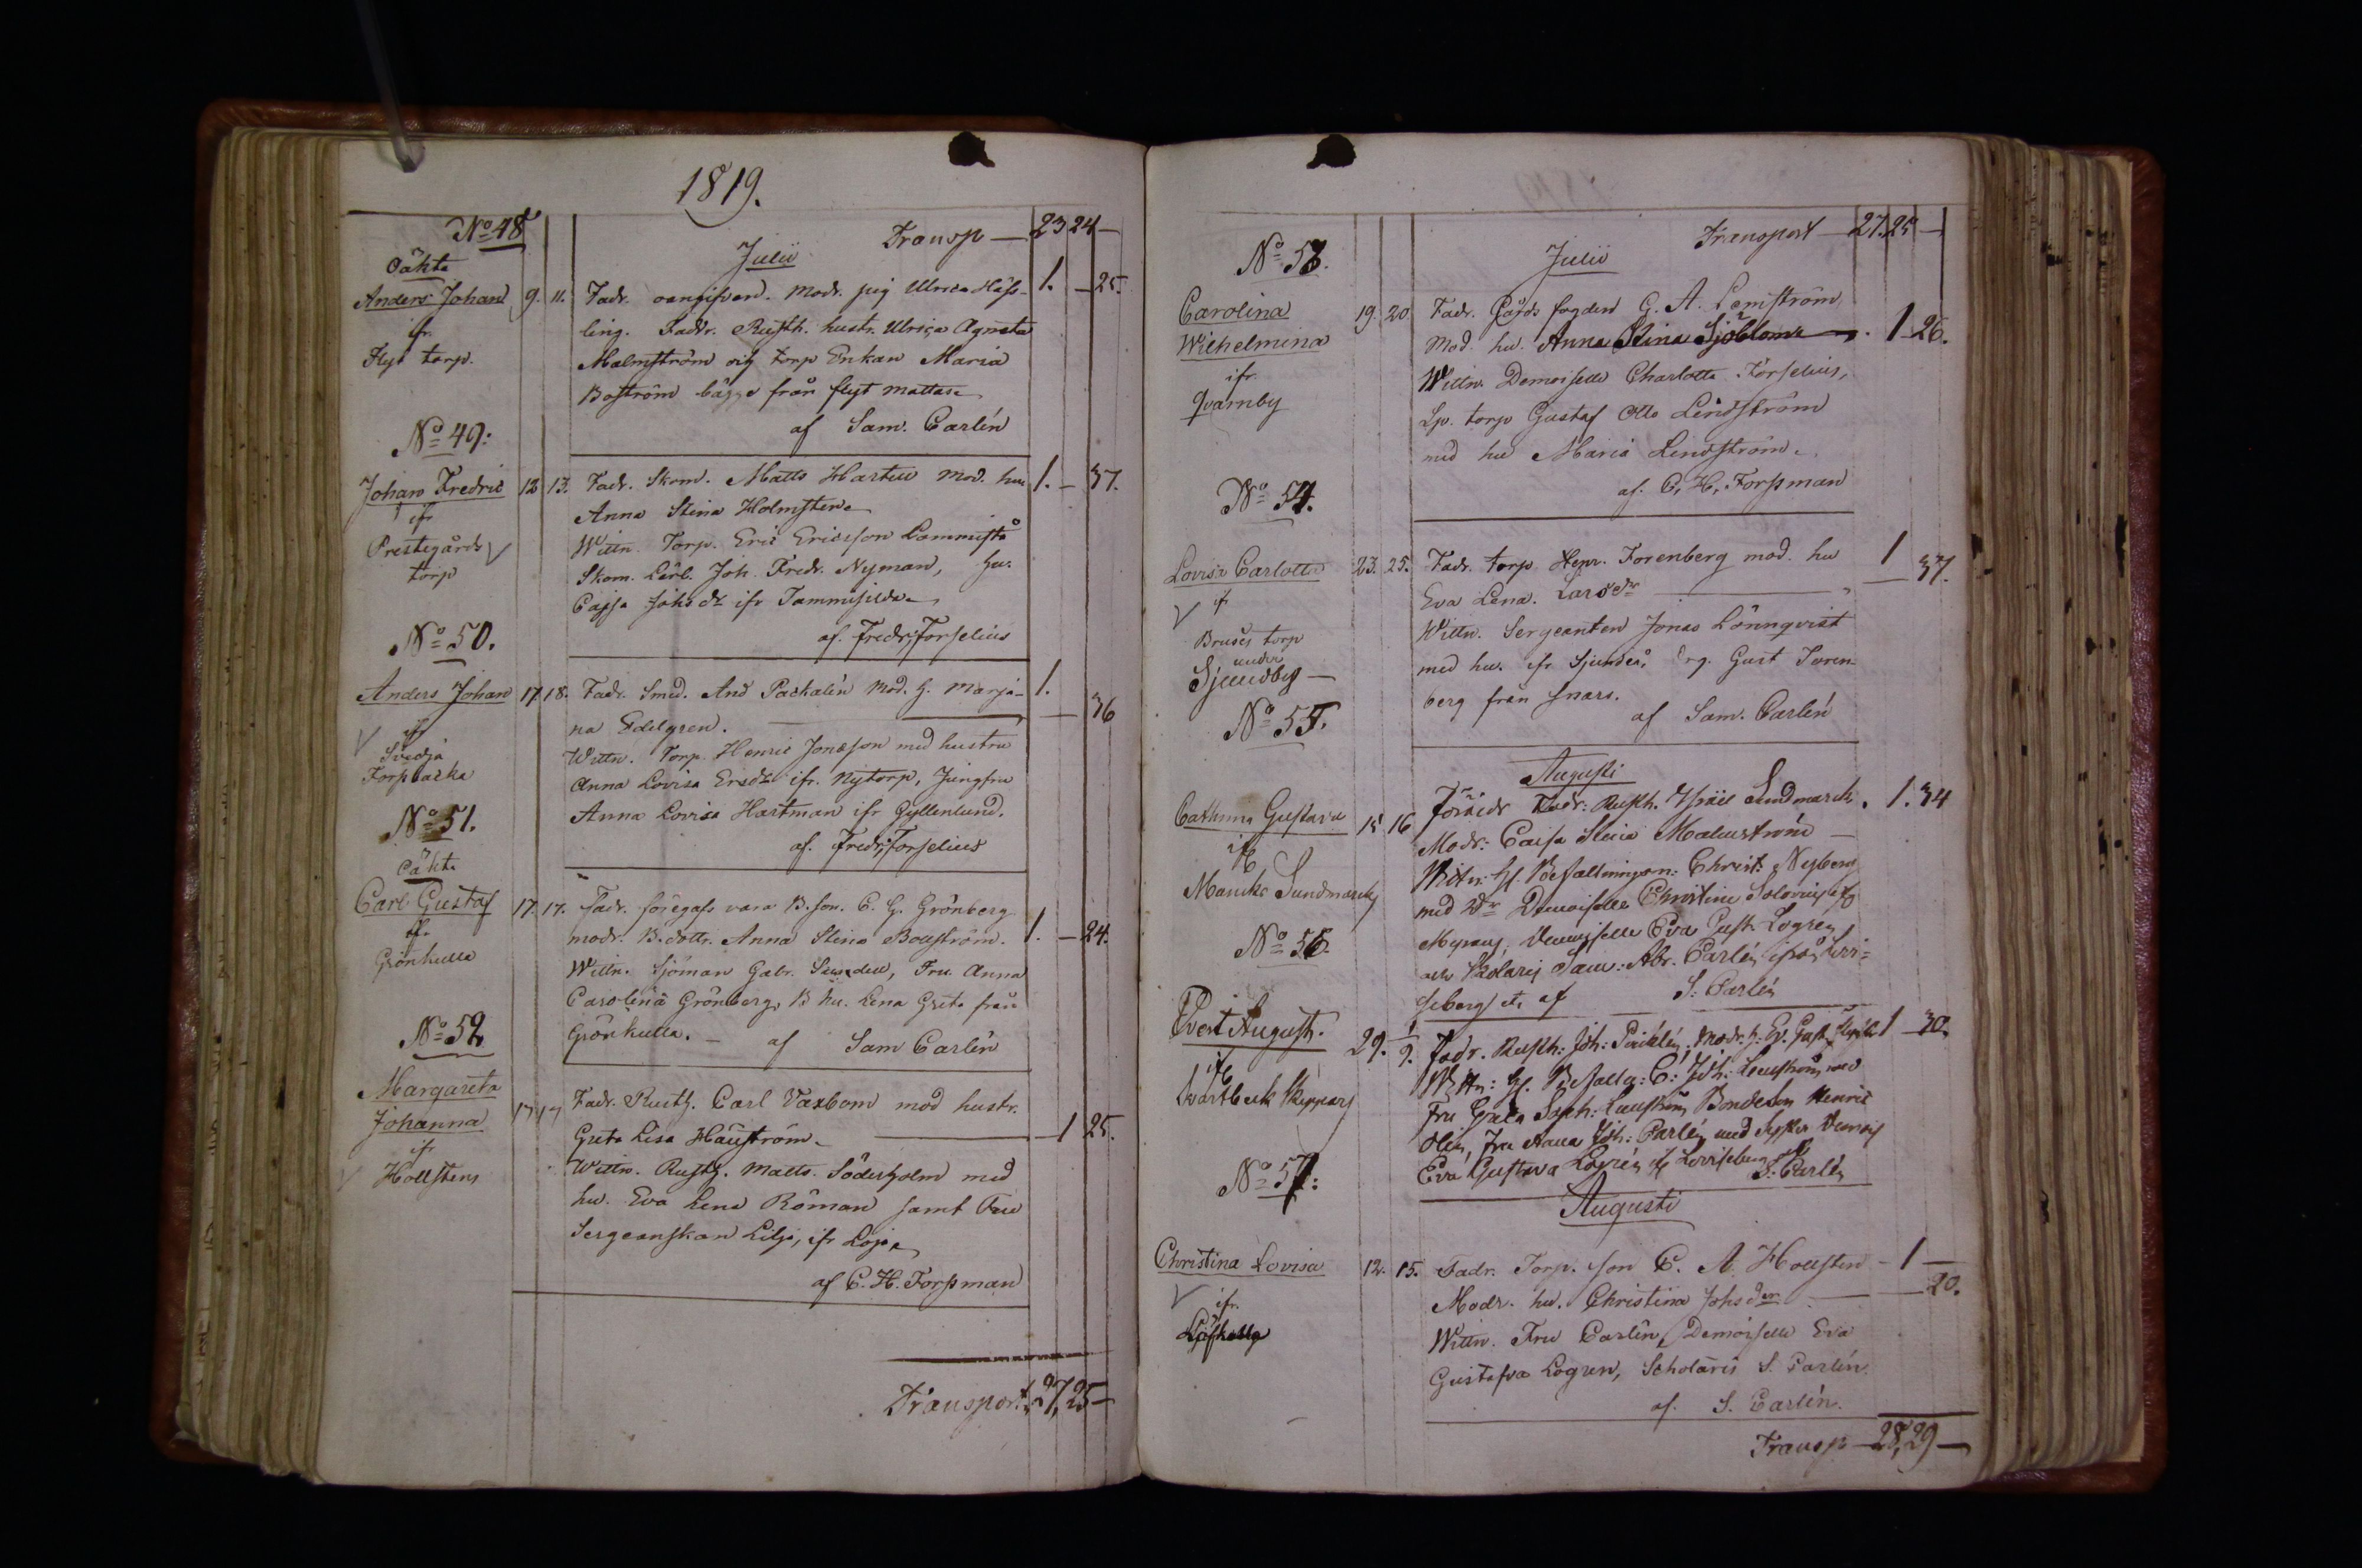 1819.
No 48
Transp — 23 24 —
Julii
Oäkta
Anders Johan 9. 11. Fadr. oangifven. Modr. pig Ulrica Häss- 1. — 25.
ifr.
ling. Faddr. Rusth. hustr. Ulrica Agneta
Flyt torp.
Malmström och torp Enkan Maria
Boström bägge från flyt mattas
af Sam. Carlén
No 49:
Johan Fredric 12 13. Fadr. Skom. Matts Harten Mod. hu 1. — 37.
ifr
Anna Stina Holmsten
Prestegårds
Wittn. Torp. Eric Ericsson
torp
Skom. Lärl. Joh. Fredr. Nyman, hu.
Cajsa Johsdr ifr
af. Fredr. Forselius
No 50.
Anders Johan 17. 18. Fadr. Smed. And Packalén Mod. h. Marja- 1. — 36
ifr
na Edelgren.
Svedja
Wittn. Torp. Henric Jonasson med hustru
Torpbacka
Anna Lovisa Ersdr ifr. Nytorp, Jungfru
Anna Lovisa Hartman ifr Gyllenlund.
af. Fredr. Forselius
No 51.
Oäkta
Carl Gustaf 17. 17. Fadr. föregafs vara B. son. C. G. Grönberg
ifr.
modr. B. dottr. Anna Stina Bollström. 1. — 24.
Grönkulla
Wittn. Sjöman Gabr. Fru Anna
Carolina Grönberg, B hu. Lena Greta från
Grönkulla. — af Sam Carlén
No 52
Margareta
Johanna 17 19 Fadr. Rusth. Carl Vaxbom mod hustr.
ifr
Greta Lisa Hauström. — 1 25.
Hollstens
Wittn. Rusth. Matts. Söderholm med
hu. Eva Lena Roman samt Fru
Sergeanskan Lilja, ifr Lojo
af C. H. Forssman
Transport 27, 25 —
Transport — 27. 25 —
No 53.
Julii
Carolina 19. 20 Fadr. Gårds fogden G. A. Lemström
Wilhelmina
Mod. hu. Anna Stina Sjöblom . 1 26.
ifr.
Wittn. Demoiselle Charlotta Forselius,
Qvarnby
Sp. torp Gustaf Otto Lindström
med hu Maria Lindström.
af. C. H. Forssman
No 54.
Lovisa Carlotta 23. 25. Fadr. torp Henr. Forenberg mod. hu 1 37.
ifr
Eva Lena. Larsdr
Bruses torp
Wittn. Sergeanten Jonas Lönnqvist
under
med hu. ifr Sjundeå, Drg. Gust Toren-
Sjundby —
berg från Snars.
af Sam. Carlén
No 55.
Augusti
Cathrina Gustava 15 16 Fadr: Rusth. Lundmarck. 1. 34
ifr
Modr: Caisa Stina Malmström —
Wittn: H. Befallningsm: Christ: Nyberg
med Dr Demoiselle Christine
Demoiselle Eva Gust. Logren
och Skolarij Sam: Abr. Carlén ifrån Lovi-
seberg etc af S: Carlén
No 56.
Evert August. 29. 1/9. Fadr. Rusth: Joh: 1 — 30.
ifr
Wittn: H. Befallg: C: Joh: Lemström med
Svartbeck Skeppars
Fru Greta Soph: Lemström Bondeson Henric
Olin, Fru Anna Joh: Carlén med Syster
Eva Gustava Logrén ifr Loviseberg af S. Carlén
No 57:
Augusti
Christina Lovisa 12. 15. Fadr. Torp. son C. A. Hollsten — 1 — 20.
ifr.
Modr. hu. Christina Johsder
Löfkulla
Wittn. Fru Carlén, Demoiselle Eva
Gustafva Logren, Scholaris S. Carlén
af. S. Carlén.
Transp — 28, 29 —